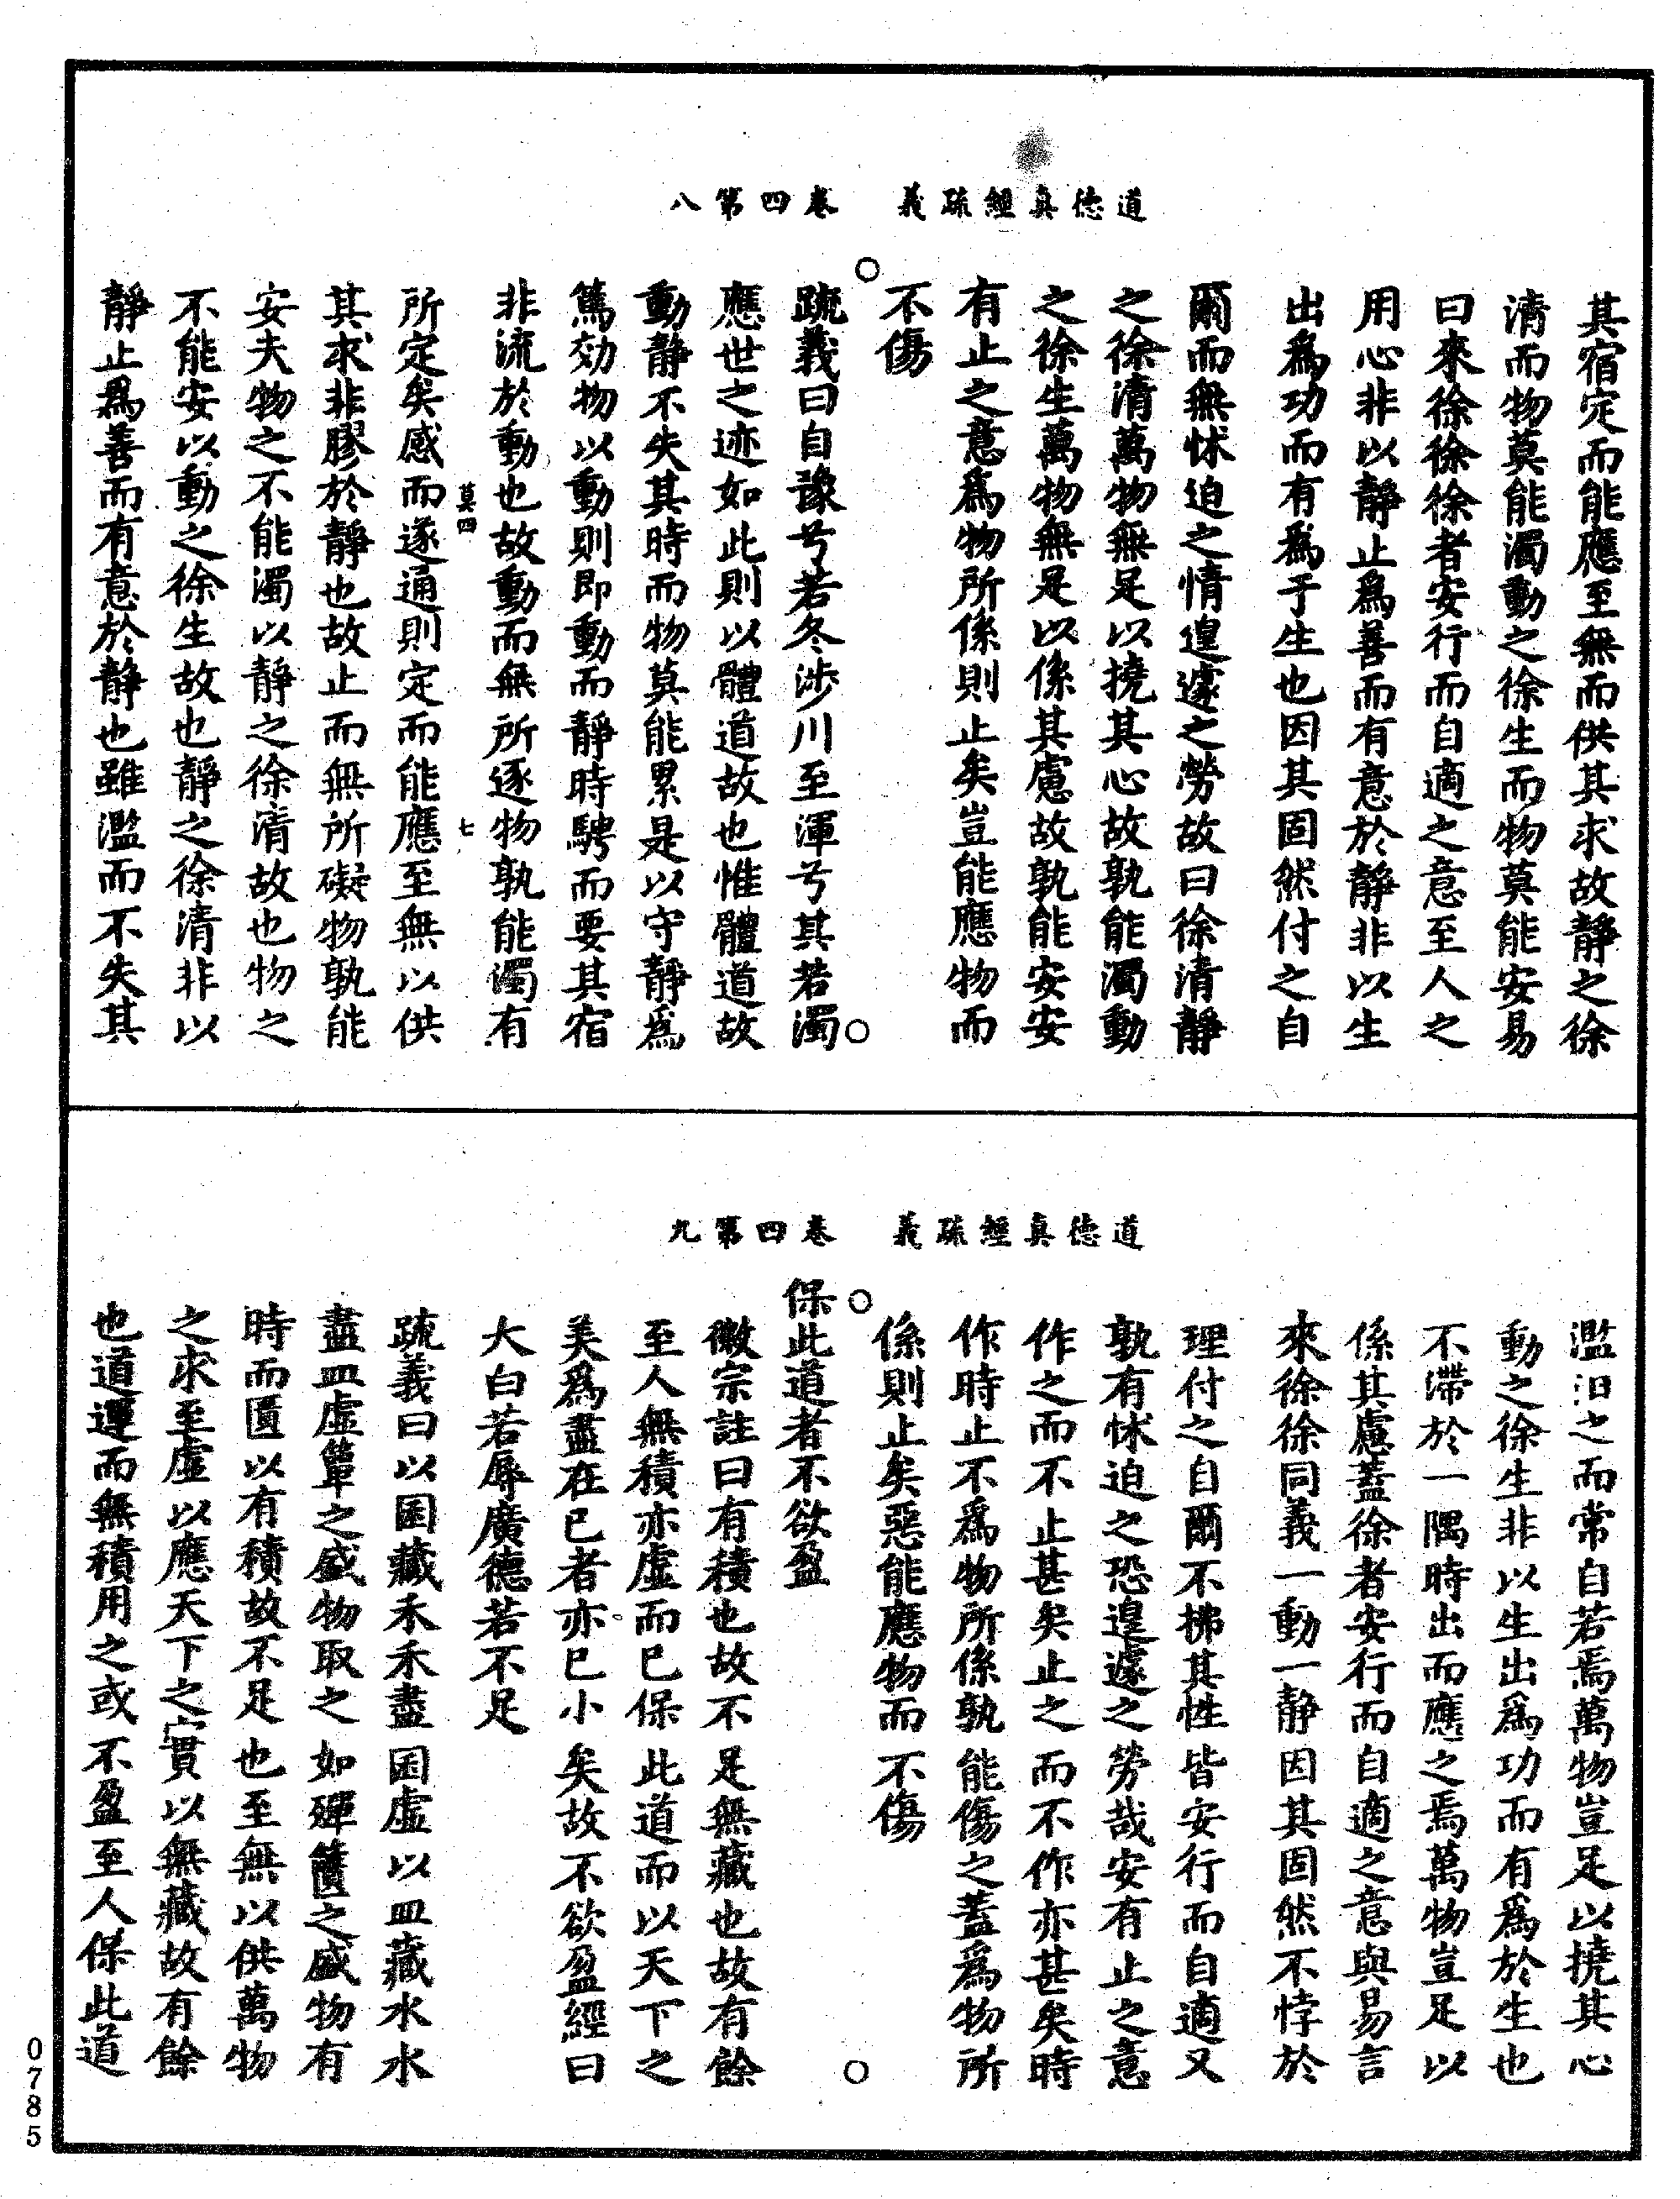 道德真經疏義　卷四第八
其宿定而能應至無而供其求故靜之徐
清而物莫能濁動之徐生而物莫能安易
曰來徐徐徐者安行而自適之意至人之
用心非以靜止爲善而有意於靜非以生
出爲功而有爲于生也因其固然付之自
爾而無怵迫之情遑遽之勞故曰徐清靜
之徐清萬物無足以撓其心故孰能濁動
之徐生萬物無足以係其慮故孰能安安
有止之意爲物所係則止矣豈能應物而
不傷
疏義曰自豫兮若冬涉川至渾兮其若濁
應世之迹如此則以體道故也惟體道故
動靜不失其時而物莫能累是以守靜爲
篤効物以動則即動而靜時騁而要其宿
非流於動也故動而無所逐物孰能濁有
莫四　七
所定矣感而遂通則定而能應至無以供
其求非膠於靜也故止而無所礙物孰能
安夫物之不能濁以靜之徐清故也物之
不能安以動之徐生故也靜之徐清非以
靜止爲善而有意於靜也雖濫而不失其
道德真經疏義　卷四第九
濫汩之而常自若焉萬物豈足以撓其心
動之徐生非以生出爲功而有爲於生也
不滯於一隅時出而應之焉萬物豈足以
係其慮蓋徐者安行而自適之意與易言
來徐徐同義一動一静因其固然不悖於
理付之自爾不拂其性皆安行而自適又
孰有怵迫之恐遑遽之勞哉安有止之意
作之而不止甚矣止之而不作亦甚矣時
作時止不爲物所係孰能傷之蓋爲物所
係則止矣惡能應物而不傷
保此道者不欲盈
徽宗註曰有積也故不足無藏也故有餘
至人無積亦虛而已保此道而以天下之
美爲盡在已者亦已小矣故不欲盈經曰
大白若辱廣德若不足
疏義曰以囷藏禾禾盡囷虛以皿藏水水
盡皿虛簞之盛物取之如殫篋之盛物有
時而匱以有積故不足也至無以供萬物
之求至虛以應天下之實以無藏故有餘
也道運而無積用之或不盈至人保此道
0785